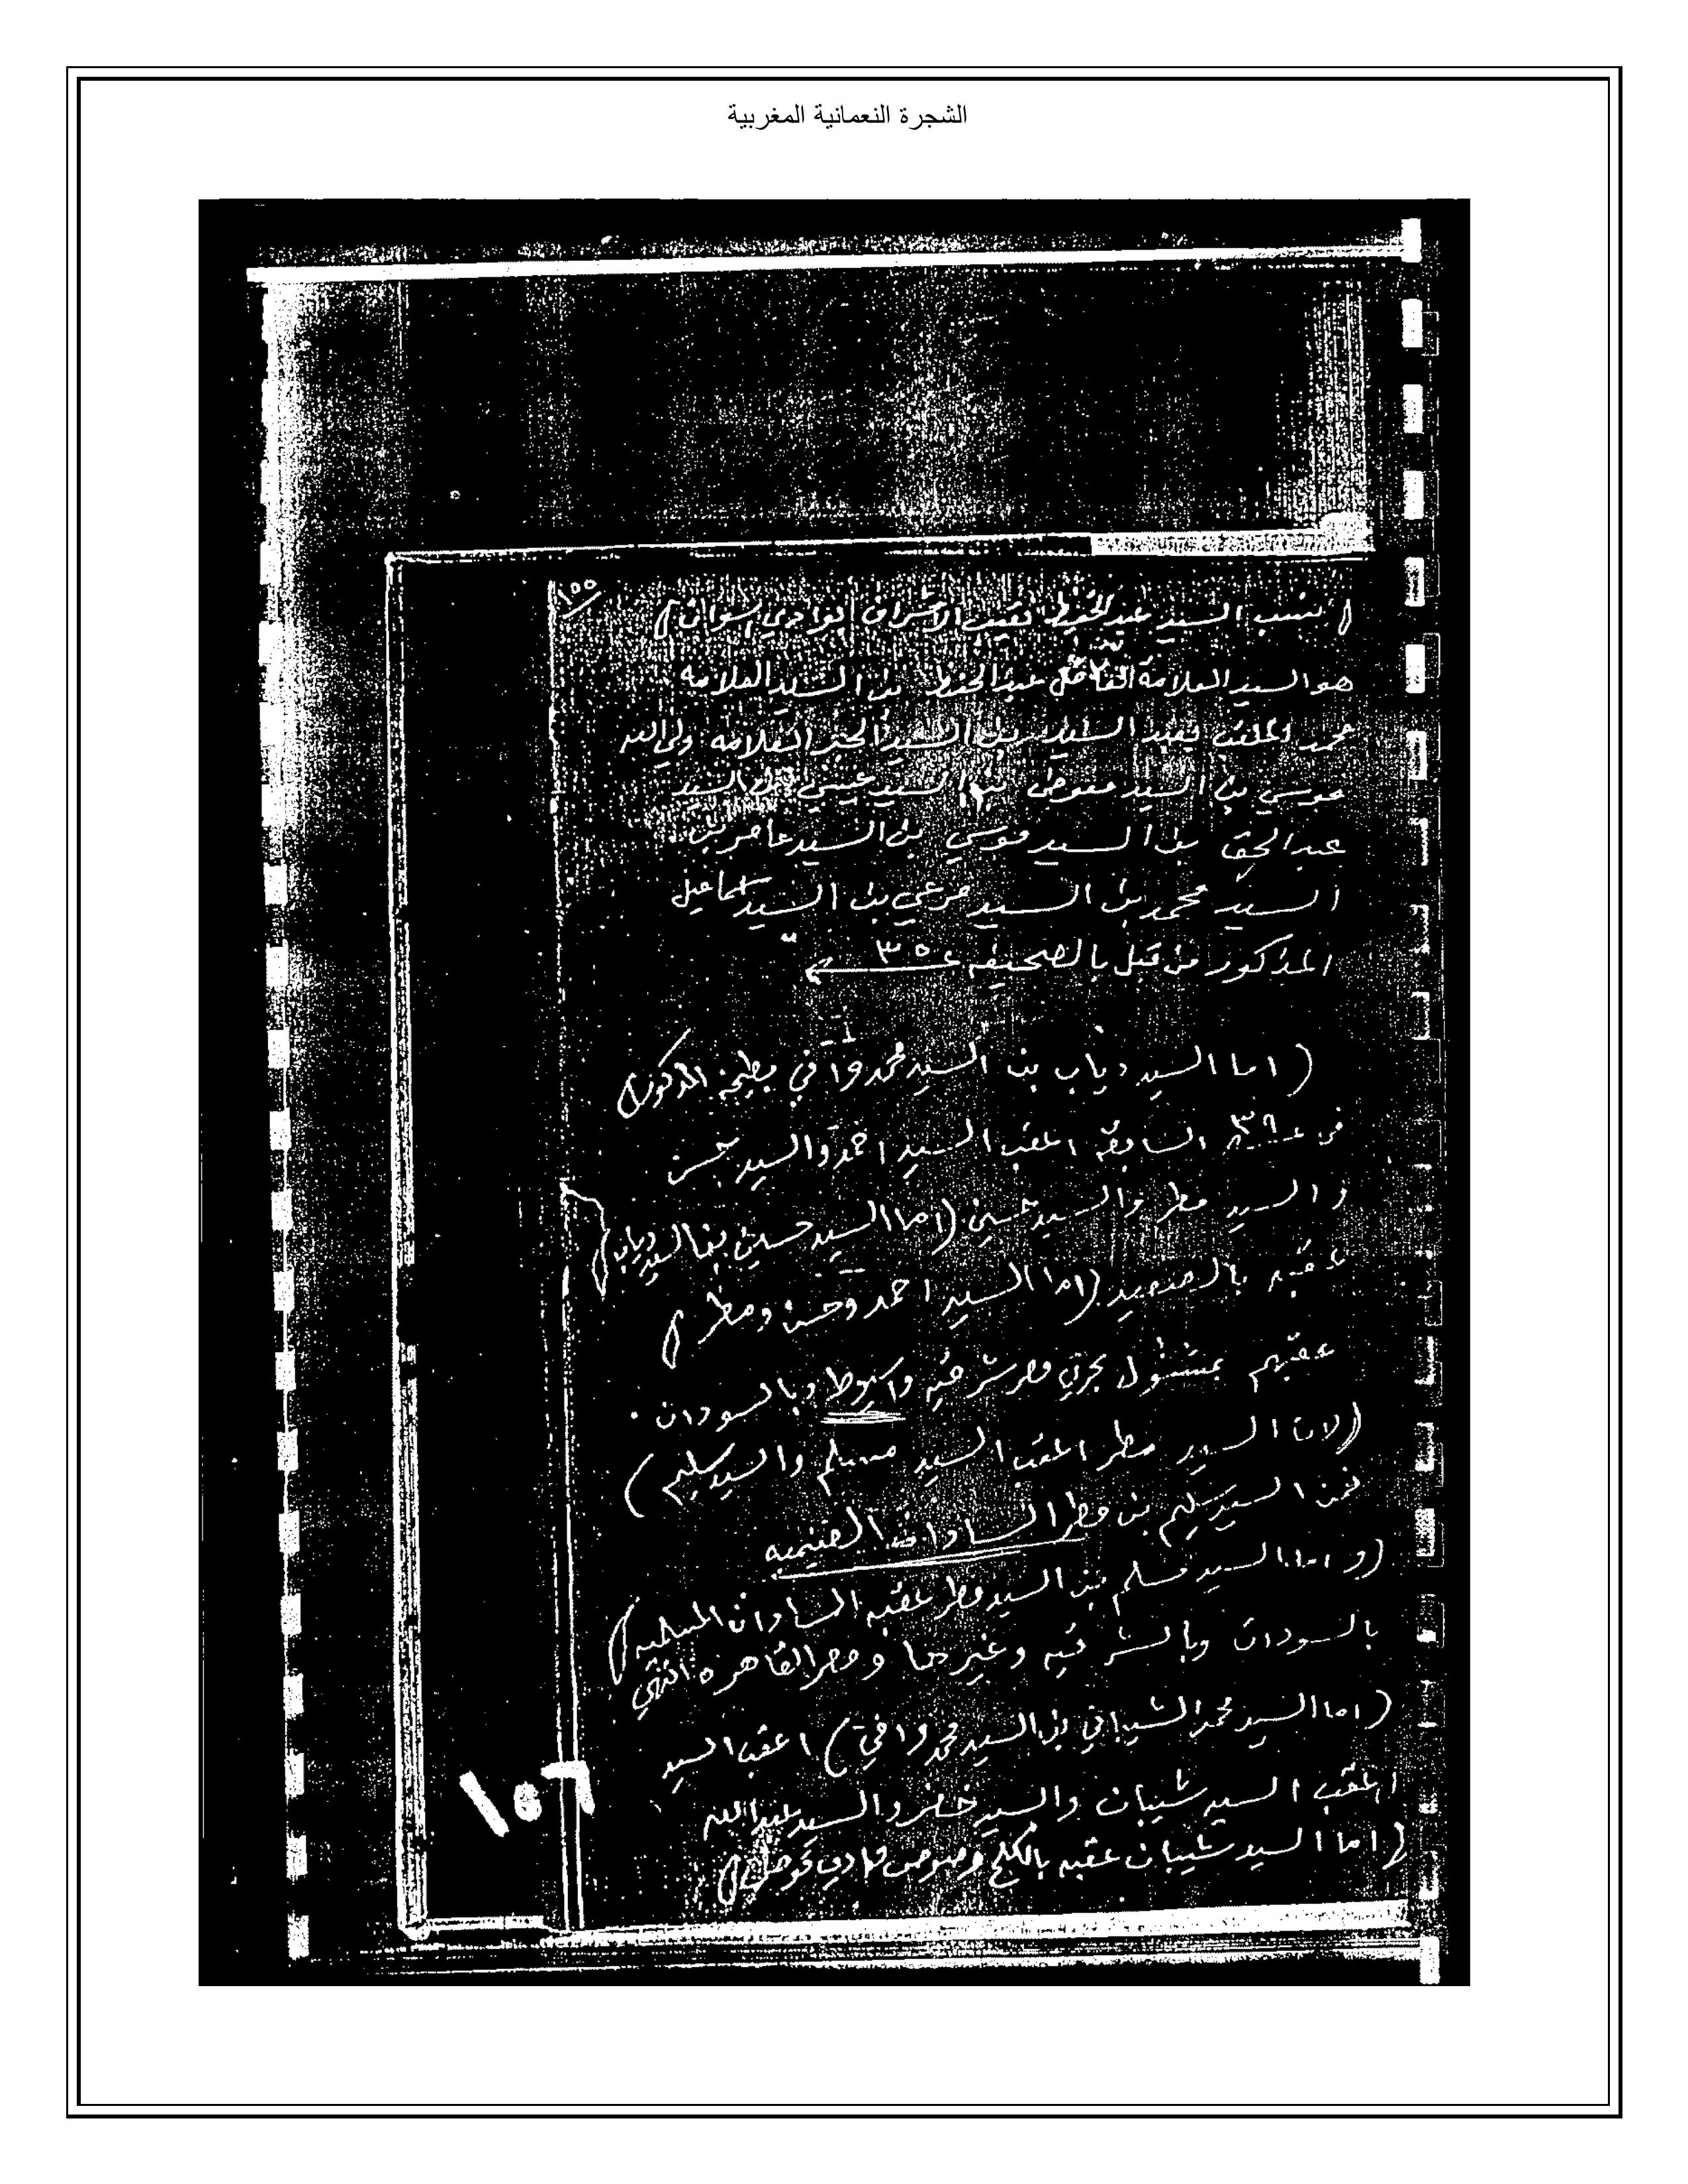 الشجرة النعمانية المغربية
١٥٥
( نسب السيد عبد الحفيظ نقيب الاشراف بوادي اسوان )
هو السيد العلامة الفاضل عبد الحفيظ بن السيد العلامه
محمد الملقب بعبد بن السيد الحبر العلامه ولي الله
موسي بن السيد معوض بن السيد عيسي بن السيد
عبد الحق بن السيد موسي بن السيد عامر بن
السيد محمد بن السيد مرعي بن السيد اسماعيل
المذكور من قبل بالصحيفه ٣٥
( اما السيد دياب بن السيد محمد وافي بطيحة المذكور )
في ٣٩ السابقه اعقب السيد احمد والسيد حسن
والسيد مطر والسيد حسين ( اما السيد حسين بن السيد دياب )
عقبه بالصعيد ( اما السيد احمد وحسن ومطر )
عقبهم بمشتول بحري مصر شرقيه واسيوط وبالسودان .
( لان السيد مطر اعقب السيد مسلم والسيد سليم )
فمن السيد سليم بن مطر السادات
( و اما السيد مسلم بن السيد مطر عقبه السادات المسلميه )
بالسودان وبالشرقيه وغيرها ومصر القاهره انتهي
( اما السيد محمد الشيباني بن السيد محمد وافي ) اعقب السيد
اعقب السيد شيبان والسيد خضر والسيد عبد الله
( اما السيد شيبان عقبه بالكلح
١٥٦